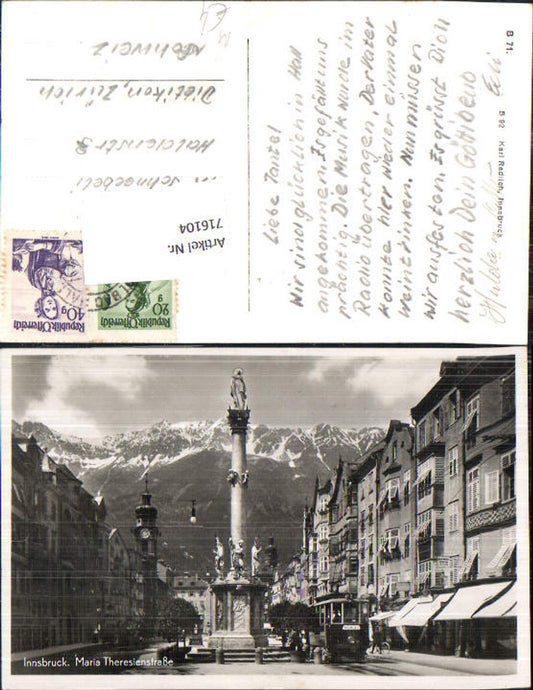 B 71.
B 92 Karl Redlich, Innsbruck
Liebe Tante!
Wir sind glücklich in Hall
angekommen. Es gefällt uns
prächtig. Die Musik wurde im
Radio übertragen. Der Vater
konnte hier wieder einmal
Wein trinken. Nun müssen
wir aufs fest an. Es grüsst Dich
herzlich Dein Göttibub
Ueli
Schnoebeli
Haldenstr
Dietikon, Zürich
Schweiz
Artikel Nr.
716104
40g
Republik Österreich
20
g
Republik Österreich
Innsbruck. Maria Theresienstraße